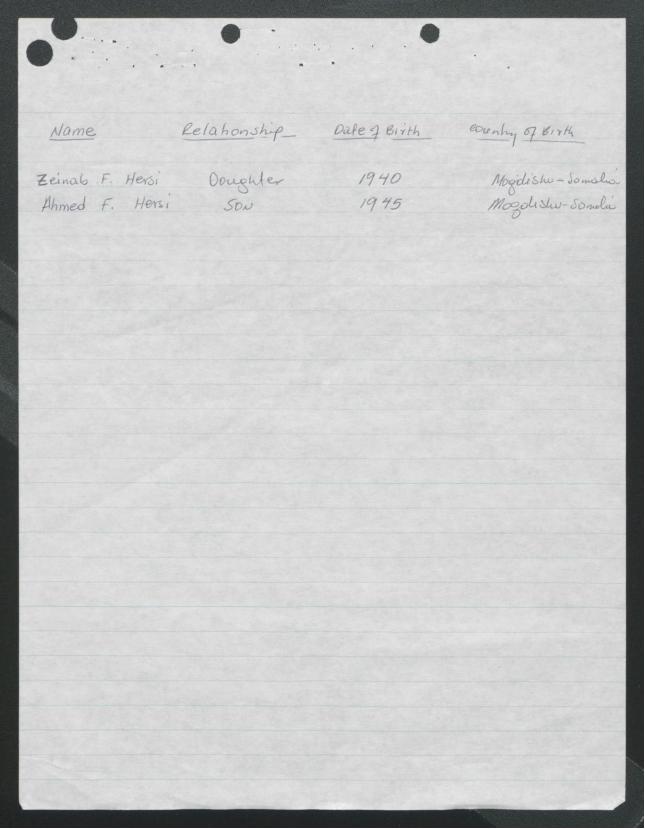 Name Relationship Date of Birth Country of Birth
Zeinab F. Hersi Doughter 1940 Mogdishu-Somalia
Ahmed F. Hersi SON 1945 Mogdishu-Somalia